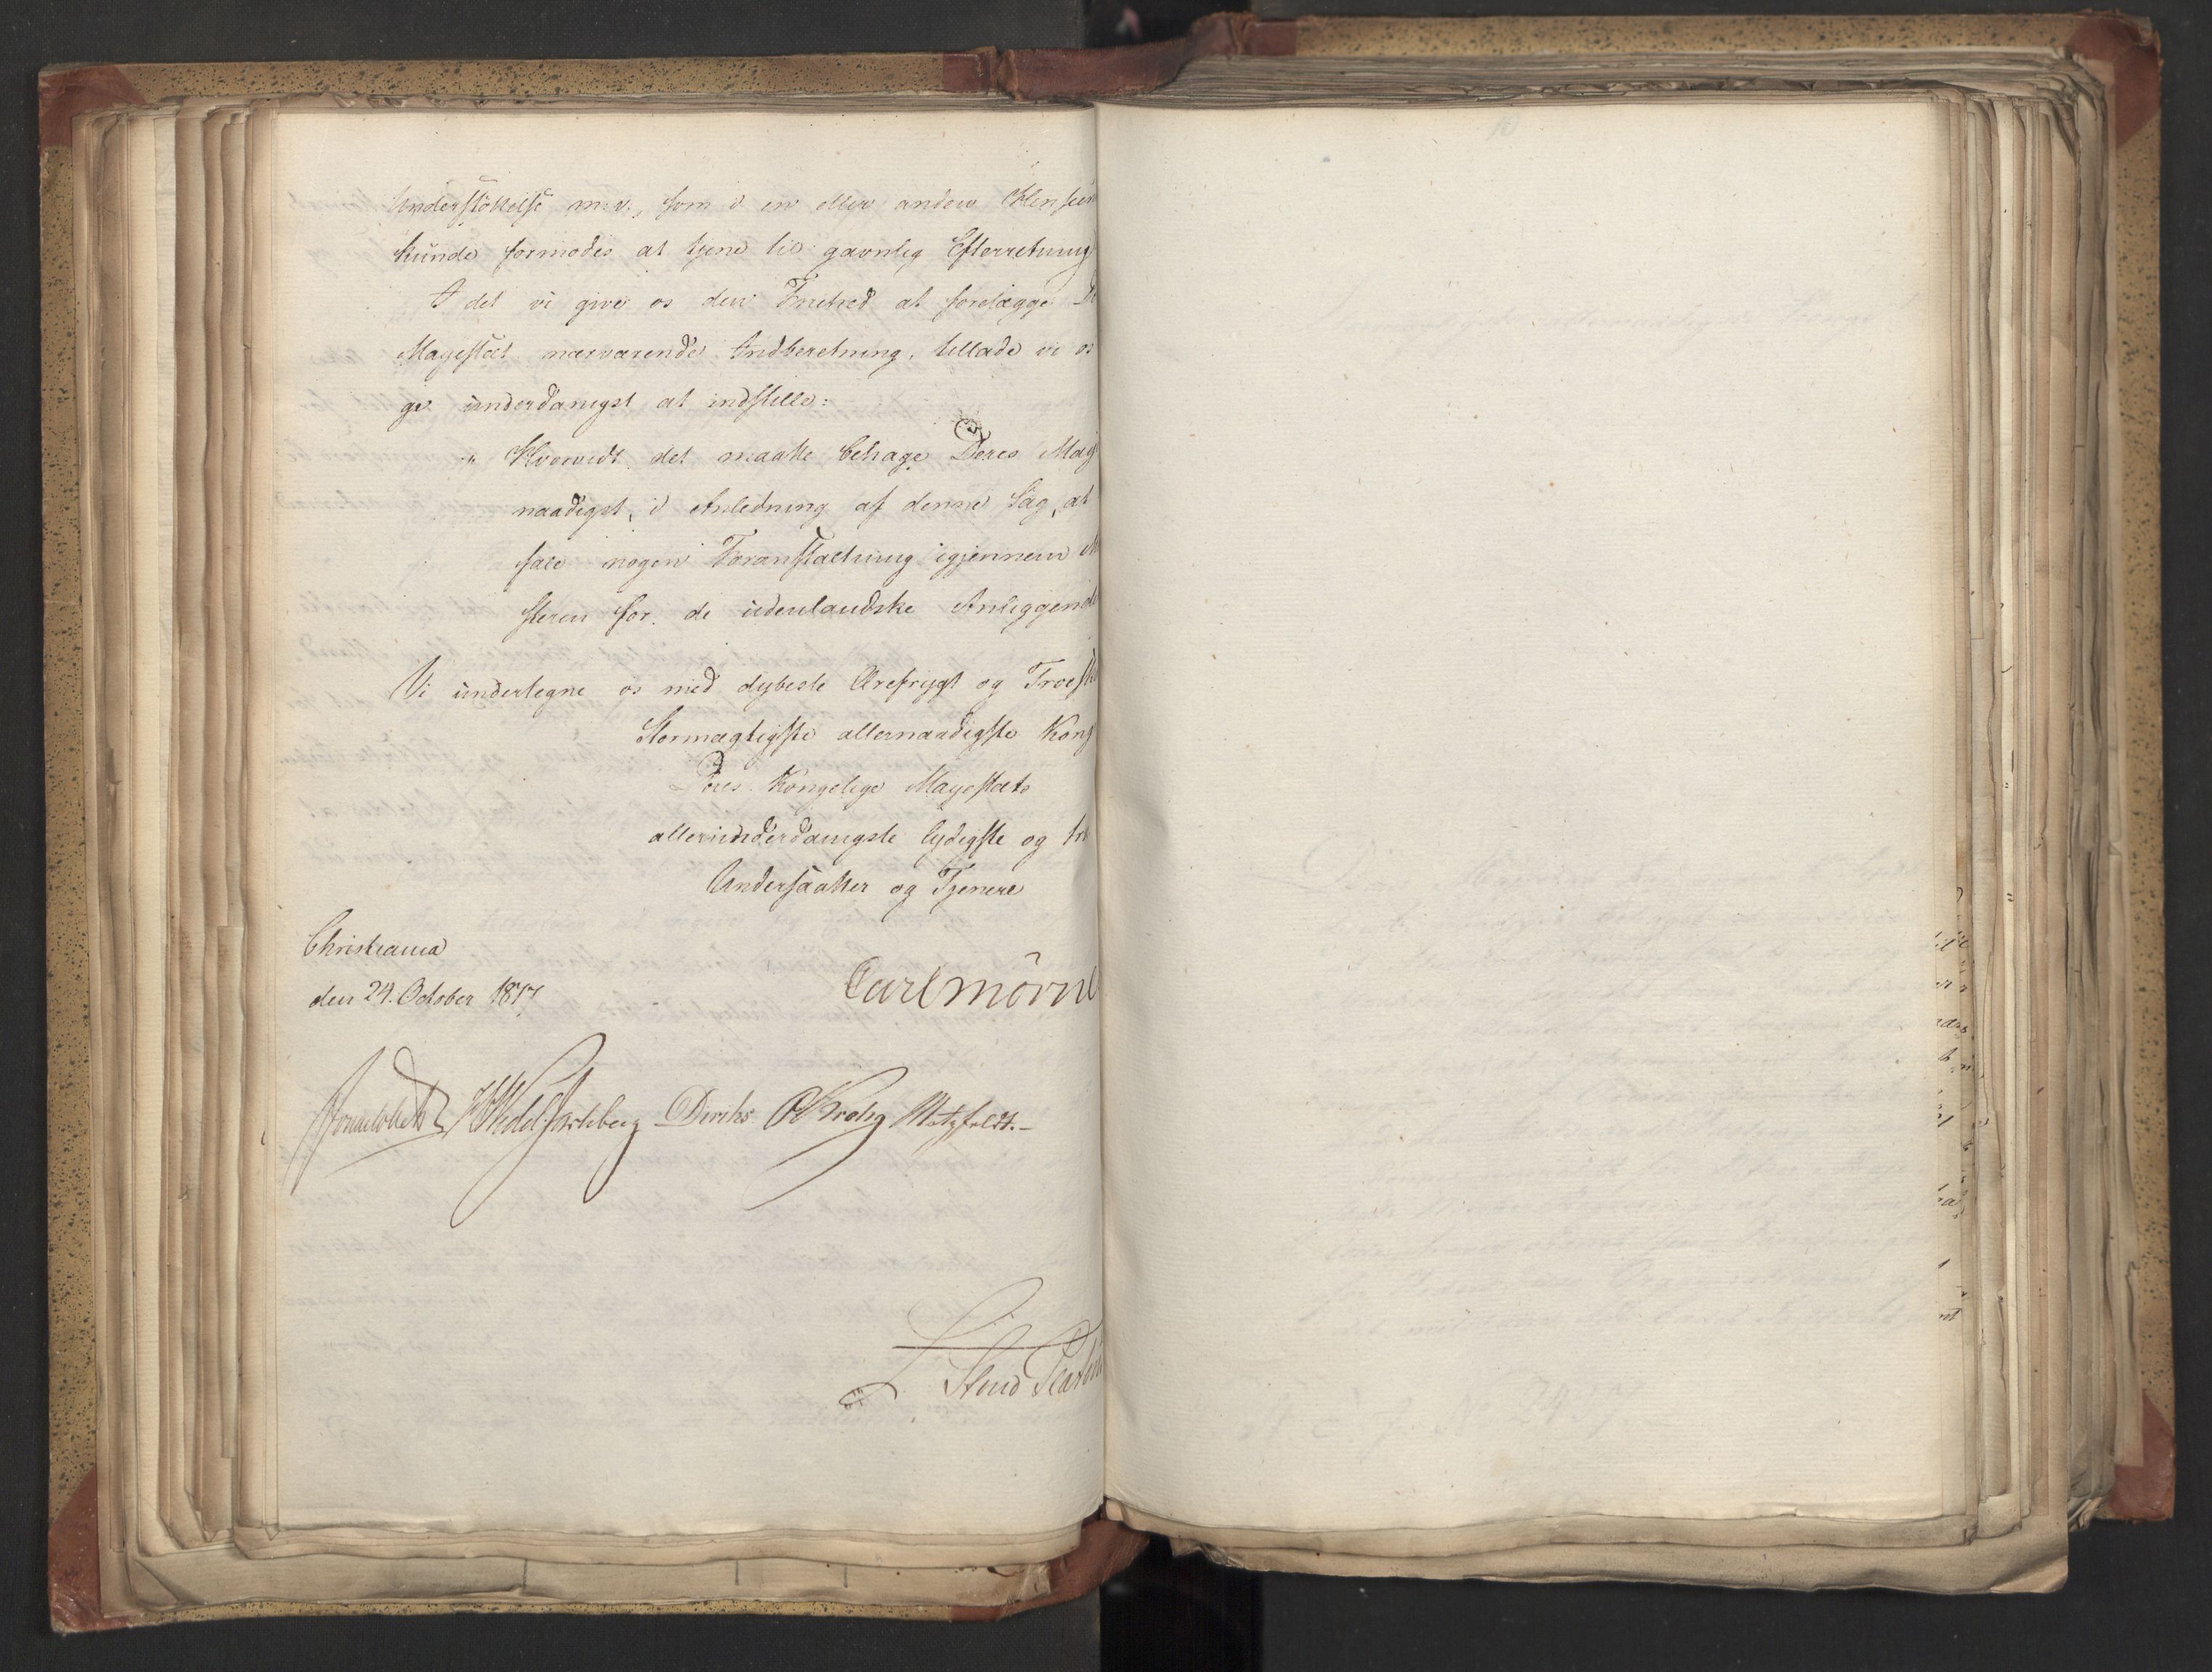 Understöttelse m. v., som i en eller anden Henseen
kunde formodes at tjene til gavnlig Efterretning
I det vi give os den Friehed at forelægge De
Mayestæt nærværende Indberetning, tillade vi os
gs underdanigst at indstille:
" Hvorvidt det maatte behage Deres Maj
naadigst, i Anledning af denne Sag, at
fale nogen Foranstaltning igjennem M
steren for de udenlandske Anliggende
Vi undertegne os med dybeste Ærefrygt og Troesk
Stormægtigste allernaadigste Kong
Deres Kongelige Mayestæts
allerunderdanigste lydigste og tro
Undersaatter og Tjenere
Christiania
den 24. October 1817
Carl Mörne
Sommerhielm HWedel Jarlsberg Diriks CKrohg Motzfeldt.
L. Stoud Platou